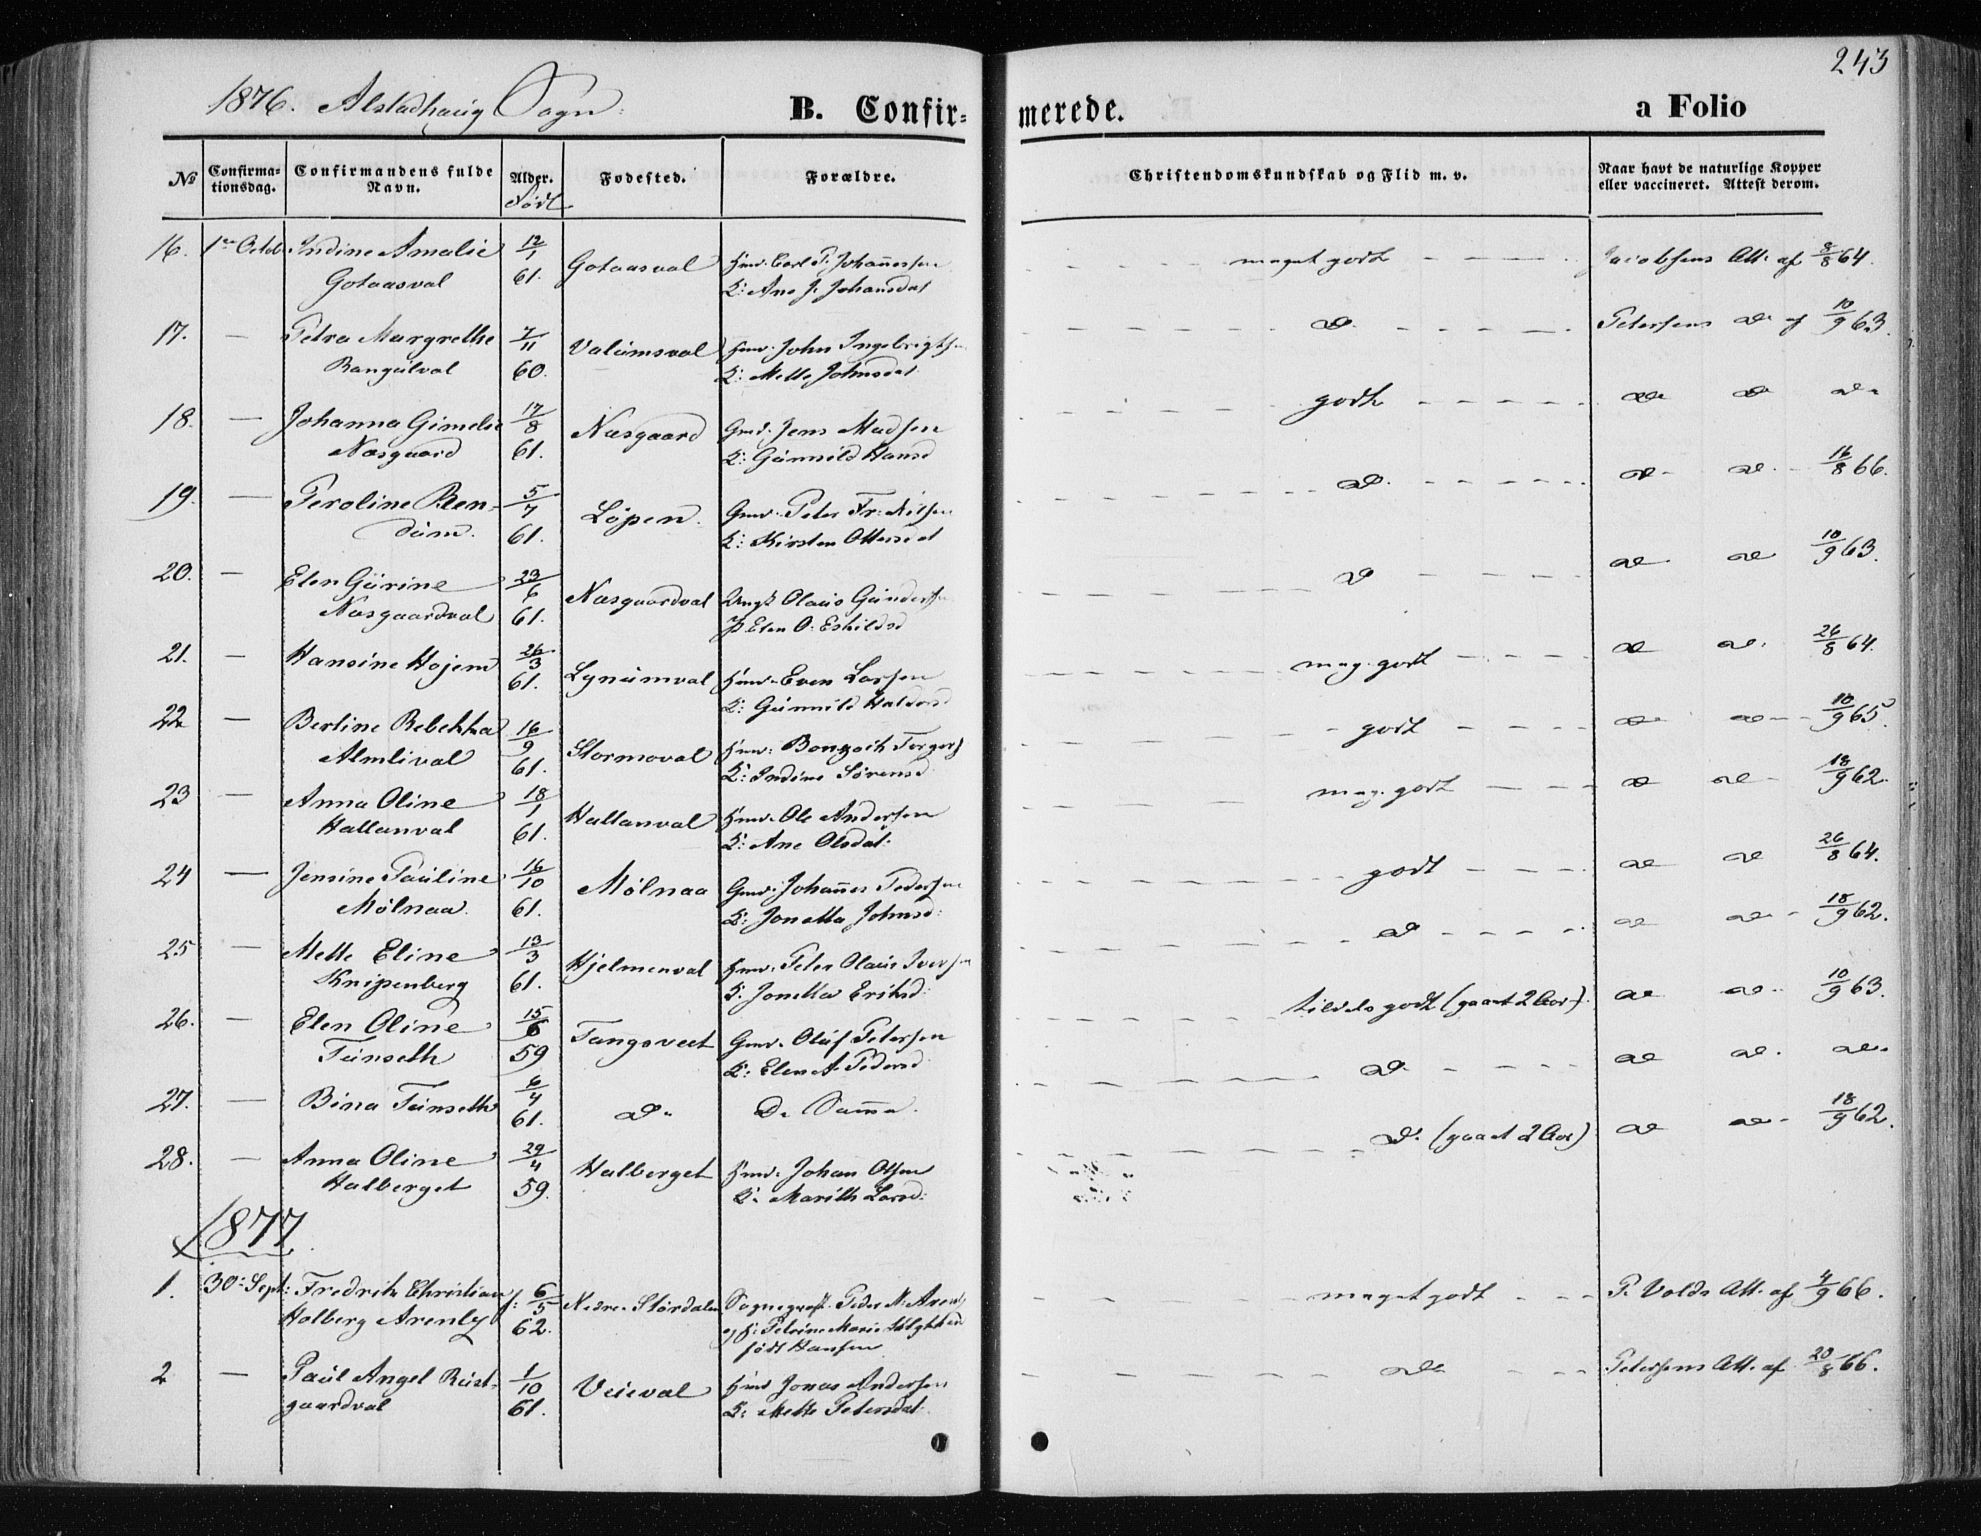 243
1876. Alstadhaug Sogn.
B. Confirmerede.
a Folio
No
Confirmationsdag.
Confirmandens fulde Navn.
Alder.
Født
Fødested.
Forældre.
Christendomskundskab og Flid m. v.
Naar havt de naturlige Kopper eller vaccineret. Attest derom.
16. 1ste Octob Indine Amalie 12/1 Gotaasval Hmd. Carl P. Johannessen meget godt Jacobsens Att. af 8/8 64.
Gotaasval 61. K: Ane J. Johansdat
17. — Petra Margrethe 7/11 Valumsval Hmd. John Ingebrigts do. Petersens do af 10/9 63.
Rangulval 60. K: Mette Johnsdat
18. — Johanna Gimelie 17/8 Næsgaard Gmd. Jens Madsen godt do do do
Næsgaard 61. K: Gunnild Hansd
19. — Peroline Ren- 5/7 Løpen. Gmd. Peter Fr: Nilsen do. do do. 16/8 66.
dum. 61. K: Kirsten Ottersdat
20. — Elen Gurine 23/6 Næsgaardval Ungk Olaus Gunders do do do 10/9 63.
Næsgaardval 61. P. Elen O. Eskildsd
21. — Hansine Hojem 26/3 Lynumval Hmd. Even Larsen meg. godt do do. 26/8 64.
61. K: Gunnild Haldorsd
22 — Berline Rebekka 16/9 Stormoval Hmd: Torgers godt do do 10/9 65.
Almlival 61. K: Indine Sørensd
23 — Anna Oline 18/1 Hallanval Hmd. Ole Andersen meg. godt do do 18/9 62.
Hallanval 61. K: Ane Olsdat.
24 — Jensine Pauline 16/10 Mølnaa Gmd. Johannes Pedersen godt do do 26/8 64.
Mølnaa. 61. K: Jonetta Johnsd:
25 — Mette Eline 13/3 Hjelmenval Hmd. Peter Olaus Iversen do do do 18/9 62.
Knipenberg 61. K. Jonetta Eriksd:
26. — Elen Oline 15/6 Tangsveet Gmd. Oluf Petersen tildels godt (gaaet 2 Aar) do do. 10/9 63.
Tunseth 59 K: Elen A. Pedersd
27. — Bina Tunseth 6/4 do. De Samme. do. do do. do.
61.
28. — Anna Oline 29/4 Halberget Hmd. Johan Olsen do. (gaaet 2 Aar) do do 18/9 62.
Halberget 59. K. Marith Larsd:
1877.
1. 30: Sept: Fredrik Christian f: 6/5 Nedre Størdalen Sognepræst Peder N. Arentz meget godt P. Volds Att. af 4/9 66.
Holberg Arentz 62. og H: Petrine Marie
født Hansen
2 — Paul Angel Rust- 1/10 Veieval Hmd Jonas Andersen do Petersens Att. af 20/8 66.
gaardval 61. K: Mette Petersdat.